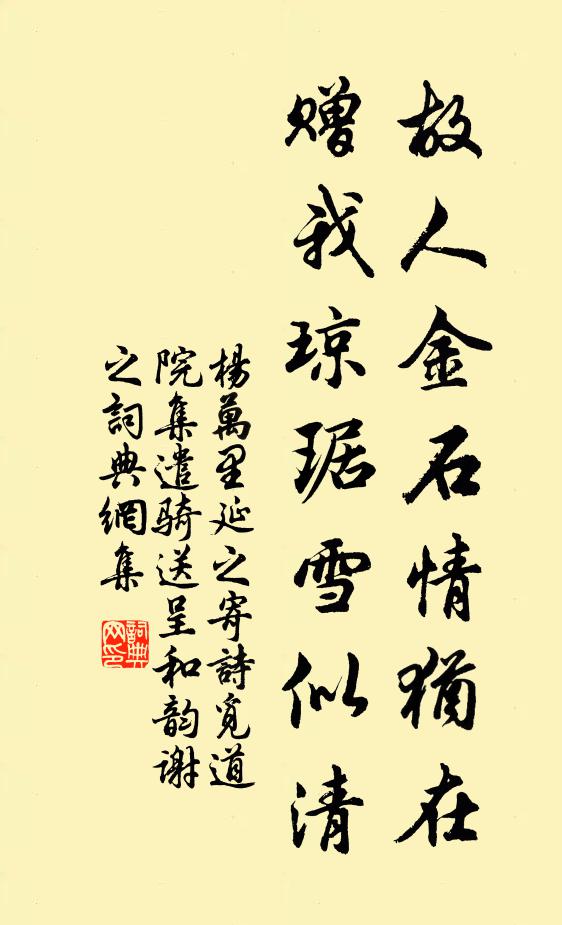 故人金石情猶在
贈我琼琚雪似清
楊萬里延之寄詩覓道
院集遣騎送呈和韵謝
之詞典網集
詞典
网印